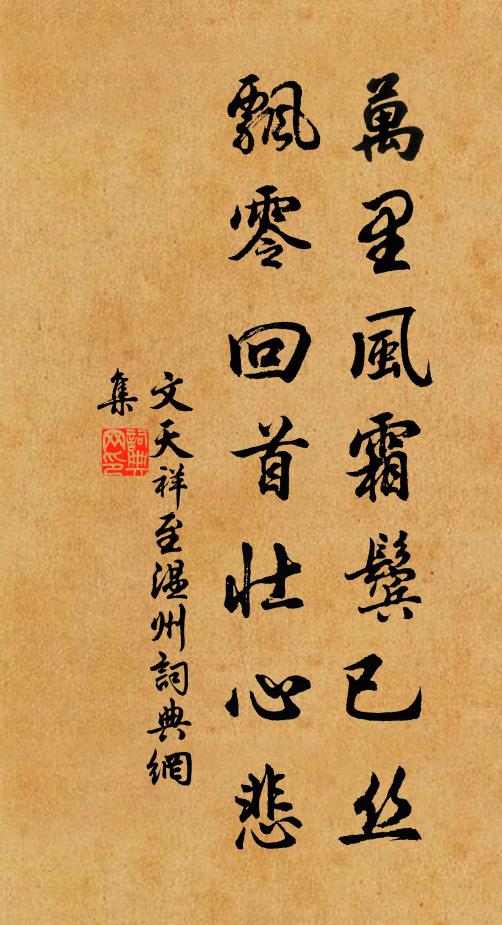 萬里風霜鬓已丝
飄零回首壮心悲
文天祥至温州詞典網
集
詞典网印